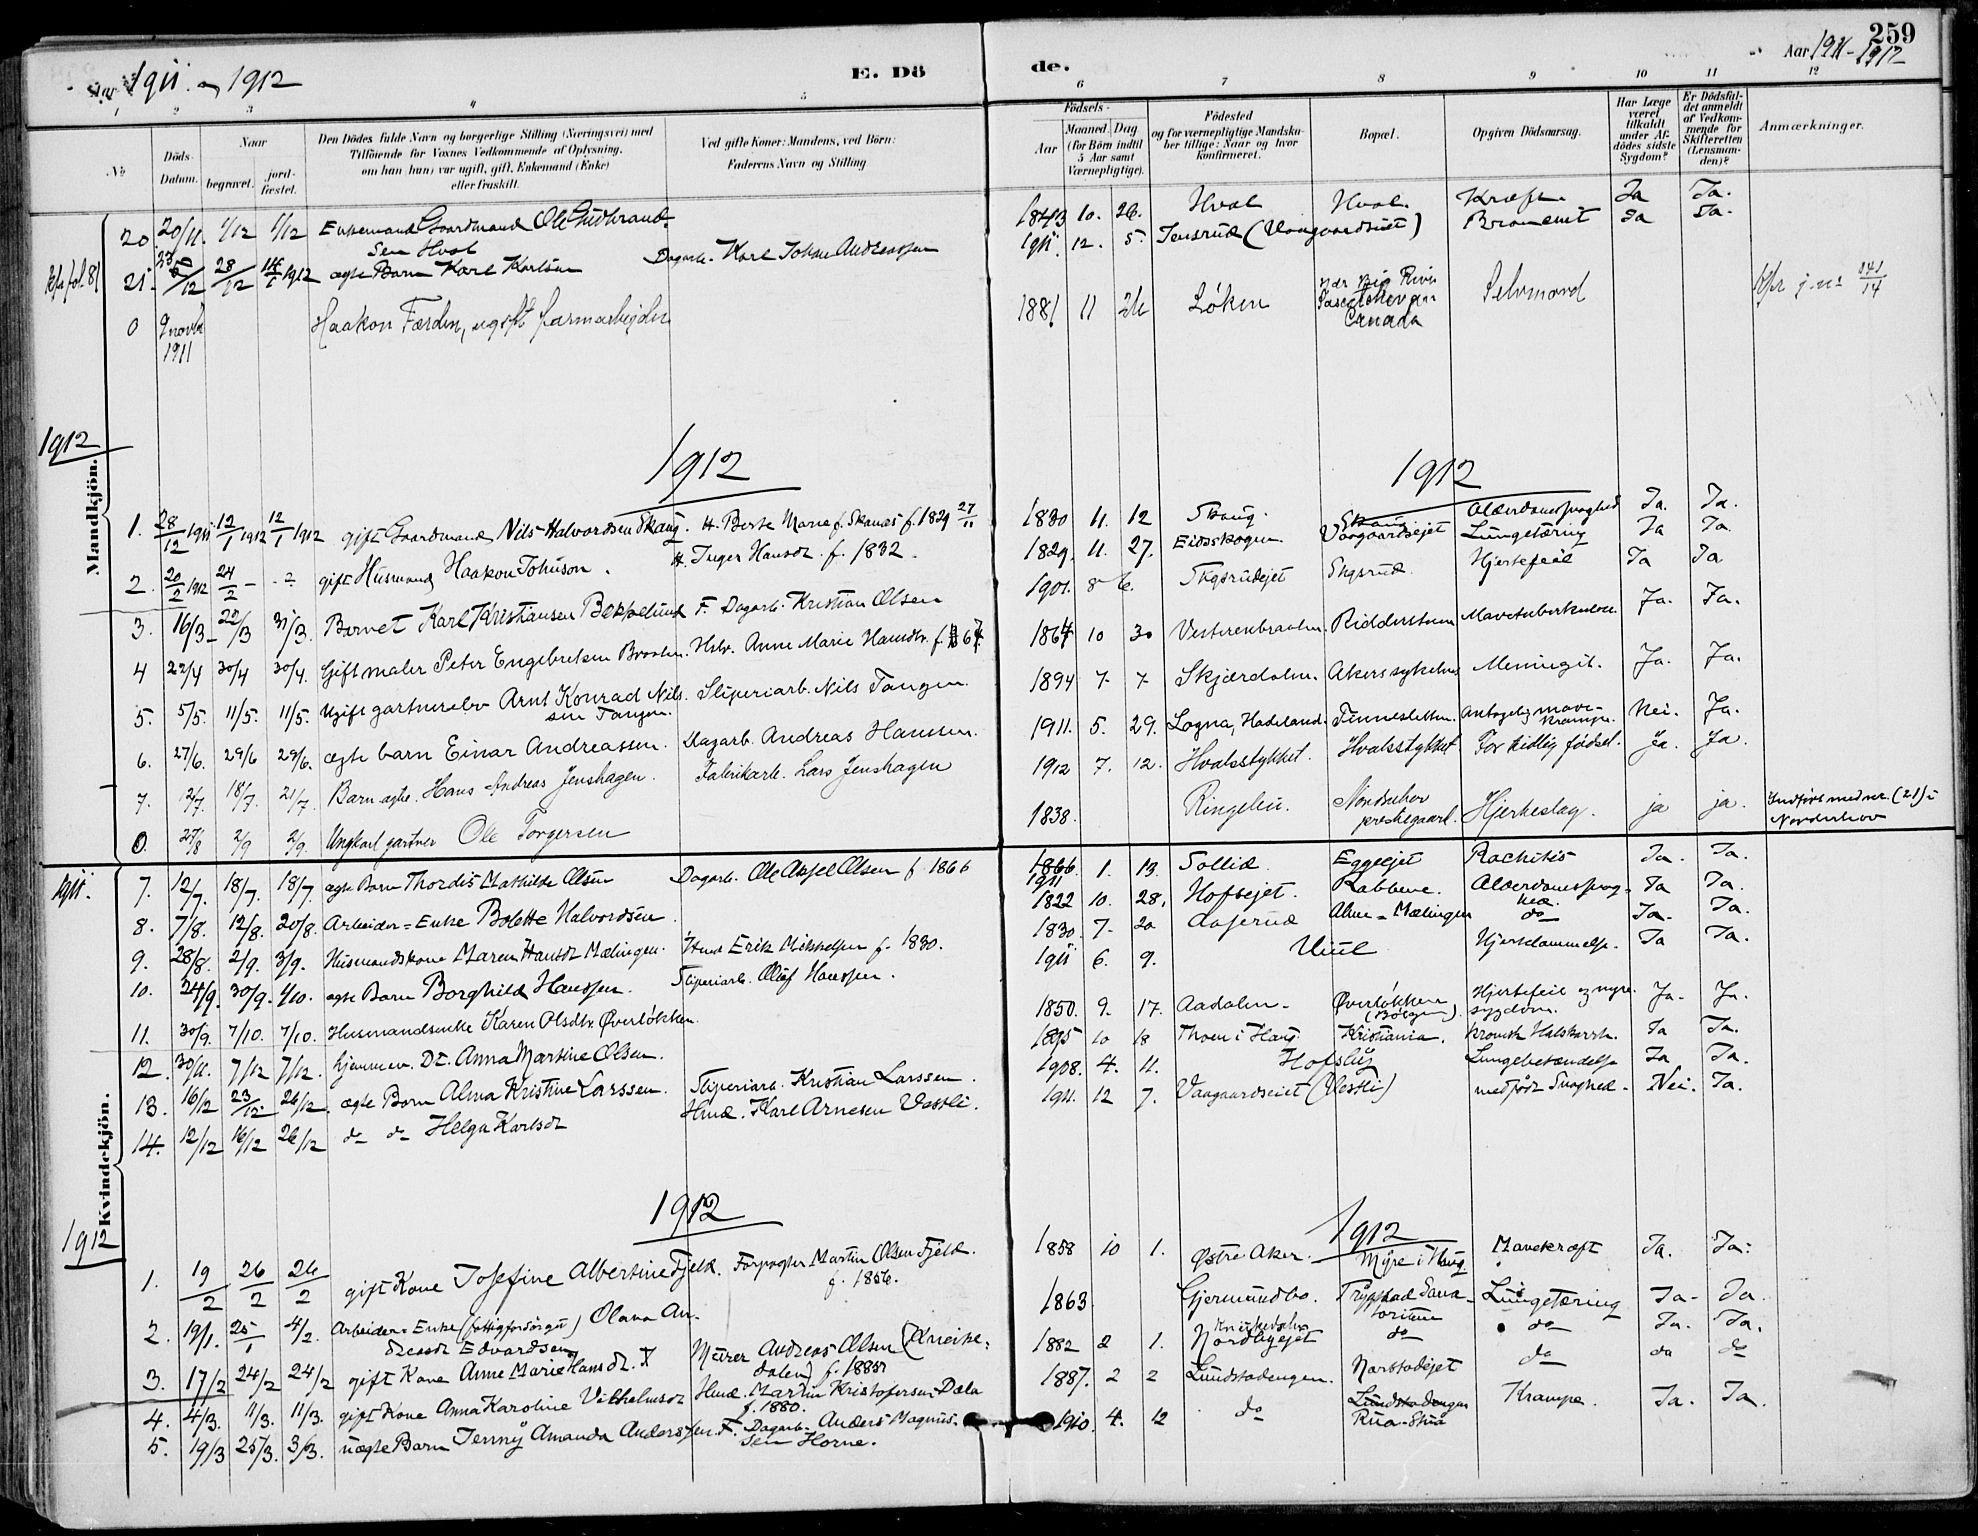 259
Aar 1911 og 1912
E. Dö
de.
Aar 1911-1912
1 2 3 4 5 6 7 8 9 10 11 12
No
Döds-
Datum.
Naar
begravet.
jord-
fæstet.
Den Dödes fulde Navn og borgerlige Stilling (Næringsvei) med
Tilföiende for Voxnes Vedkommende af Oplysning,
om han (hun) var ugift, gift, Enkemand (Enke)
eller fraskilt.
Ved gifte Koner: Mandens, ved Börn:
Faderens Navn og Stilling
Födsels-
Aar
Maaned. Dag
(for Börn indtil
5 Aar samt
Værnepligtige).
Födested
og for værnepligtige Mandska-
ber tillige: Naar og hvor
konfirmeret.
Bopæl.
Opgiven Dödsaarsag.
Har Læge
været
tilkaldt
under Af-
dödes sidste
Sygdom?
Er Dödsfal-
det anmeldt
af Vedkom-
mende for
Skifteretten
(Lensman-
den)?
Anmærkninger.
20. 20/11. 1/12 1/12 Enkemand Gaardmand Ole Gudbrand-
sen Hval
1843 10. 26. Hval Hval. Kræft. Ja Ja.
21. 12 28/12 14/1 1912 ægte Barn Karl Karlsen Dagarb. Karl Johan Andreassen
1911 12. 5. Jensrud (Vaagaardseiet) Bronchit Ja Ja.
0 9 novbr
1911
Haakon Færden, ugift farmarbeider
1881 11 26 Løken nær Big River
Sascatchevan
Canada
Selvmord
Kfr j.nr 141/14
1912
Mandkjön.
1912
1912
1. 28/12 1911 12/1 1912 12/1 1912 gift Gaardmand Nils Halvordsen Skaug. H. Berte Marie f. Skanes f. 1829 27/11
1830 11. 12 Skaug. Skaug Alderdomssvaghed Ja. Ja.
2. 20/2 1912 24/2 - - gift Husmand Haakon Johnson. H. Inger Hansdt. f. 1832.
1829. 11. 27. Eidsskogen Vaagaardsejet Lungetæring Ja Ja.
3. 16/3 22/3 31/3. Barnet Karl Kristiansen Bekkelund F. Dagarb. Kristian Olsen
1901. 8 6. Skgsrudejet Skgsrud. Hjertefeil Ja Ja
4 22/4 30/4 30/4. Gift maler Peter Engebretsen Braaten. Hstr. Anne Marie Hansdtr. f. 1867.
1864 10 30 Vesterenbraaten. Ridderstuen Mavetuberkulose. Ja. Ja.
5. 5/5. 11/5. 11/5. Ugift gartnerelev Arnt Konrad Nils-
sen Tangen.
Sliperiarb. Nils Tangen
1894 7. 7 Skjærdalen. Akers sykehus Meningit. Ja. Ja.
6. 27/6. 29/6 29/6. ægte barn Einar Andreassen. Dagarb. Andreas Hansen.
1911. 5. 29. Logna, Hadeland. Finnesletten. Antagelig mave-
krampe.
Nei. Ja.
7. 12/7. 18/7. 21/7. Barn ægte. Hans Andreas Jenshagen. Fabrikarb. Lars Jenshagen
1912 7. 12. Hvalsstykket. Hvalsstykket. For tidlig fødsel. Ja. Ja.
0. 27/8 2/9 2/9. Ungkarl gartner Ole Torgersen
1838. Ringebu. Norderhov
prestegaard.
Hjerteslag. ja ja. Indført med nr. (21) i
Norderhov
1911.
Kvindekjön.
7. 12/7. 18/7. 18/7. ægte Barn Thordis Mathilde Olsen Dagarb. Ole Axsel Olsen f. 1866
1866
1911
1. 13. Sollid. Eggeejet Rachitis Ja. Ja.
8. 7/8. 12/8. 20/8. Arbeider=Enke Bolette Halvordsen.
1822 10. 28. Hofsejet. Rabbene. Alderdomssvag-
hed
Ja Ja.
9. 28/8. 2/9. 3/9. Husmandskone Maren Hansdt Mælingen. Hmd Erik Mikkelsen f. 1830.
1830 7. 20 Aaserud Alme-Mælingen do Ja. Ja.
10. 24/9. 30/9. 1/10. ægte Barn Borghild Hanssen. Sliperiarb. Oluf Hanssen.
1911 6. 9. Uiul Hjertelammelse. Ja Ja.
11. 30/9. 7/10. 7/10. Husmandsenke Karen Olsdtr. Øverløkken.
1850. 9. 17. Aadalen. Øverløkken
(Bølgen).
Hjertefeil og nyre-
sygdom.
Ja. Ja.
12. 30/11. 7/12 7/12. hjemmev. Dt. Anna Martine Olsen.
1895 10 18 Thoen i Haug Kristiania. kronisk Halskatarrh. Ja Ja.
13. 16/12 23/12. 26/12. ægte Barn Alma Kristine Larssen. Sliperiarb. Kristian Larssen.
1908. 4. 11. Hofslig Lungebetændelse Ja Ja.
14. 12/12 16/12 26/12 do do Helga Karlsdt Hmd. Karl Arnesen Vestli.
1911. 12 7. Vaagaardseiet (Vestli) medfødt Svaghed. Nei. Ja.
1912
1912
1912
1. 19/2 26/2 26/2 gift Kone Josefine Albertine Fjeld. Forpagter Martin Olsen Fjeld.
f. 1856.
1858 10 1. Østre Aker. Myre i Haug Mavekræft Ja. Ja.
2. 19/1. 25/1 4/2. Arbeider=Enke (fattigforsørget) Olava An-
dreasdt Edvardsen
1863 Gjermundbo. Trygstad Sana-
torium
Lungetæring Ja. Ja.
3. 17/2 24/2 24/2 gift Kone Anne Marie Hansdt. X Murer Andreas Olsen (Kneike-
dalen) f. 1885
1882 2 1. Kneikedalen
Nordbyejet
do do Ja. Ja.
4. 4/3. 11/3. 11/3. gift Kone Anna Karoline Vilhelmsdt Hmd. Martin Kristofersen Dæla
f. 1880.
1887. 2 2 Lundstadengen. Narstadejet do do do
5. 19/3 25/3. 3/3. uægte Barn Jenny Amanda Anderssen. F. Dagarb. Anders Magnus-
sen Horne.
1910. 4. 12 do Lundstadengen
Rua-Stua
Krampe. Ja. Ja.